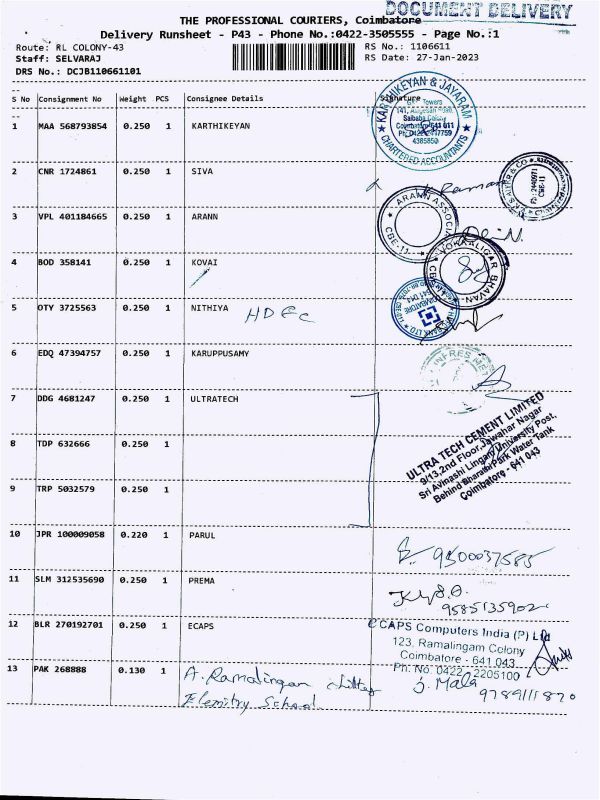 DOCUMENT DELIVERY
THE PROFESSIONAL COURIERS, Coimbatore
Delivery Runsheet - P43 - Phone No.:0422-3505555 - Page No.:1
Route: RL COLONY-43 RS No.: 1106611
Staff: SELVARAJ RS Date: 27-Jan-2023
DRS No.: DCJB110661101
S No Consignment No Weight PCS Consignee Details Signature
KARTHIKEYAN & JAYARAM
CHARTERED ACCOUNTANTS
1 MAA 568793854 0.250 1 KARTHIKEYAN
2 CNR 1724861 0.250 1 SIVA
Raman
3 VPL 401184665 0.250 1 ARANN
ARANN ASSOCIA
CBE-11
4 BOD 358141 0.250 1 KOVAI
5 OTY 3725563 0.250 1 NITHIYA HDFC
6 EDQ 47394757 0.250 1 KARUPPUSAMY
7 DDG 4681247 0.250 1 ULTRATECH
ULTRA TECH CEMENT LIMITED
9/13,2nd Floor,Jawahar Nagar
Sri Avinashi Lingam University Post,
Behind Bharathi Park Water Tank
Coimbatore - 641 043
8 TDP 632666 0.250 1
9 TRP 5032579 0.250 1
10 JPR 100009058 0.220 1 PARUL
9500037585
11 SLM 312535690 0.250 1 PREMA
9585135902
12 BLR 270192701 0.250 1 ECAPS
ECAPS Computers India (P) Ltd
123, Ramalingam Colony
Coimbatore - 641 043
Ph. No: 0422 2205100
13 PAK 268888 0.130 1 A. Ramalingam chittey
Elemitry School
J. Mala
9789111820